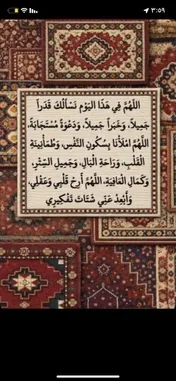 ٣:٥٩
اللَّهُمَّ فِي هَذَا اليَوْمِ نَسْأَلُكَ قَدَرَاً
جَمِيلاً، وَخَبَرَاً جَمِيلاً، وَدَعْوَةً مُسْتَجَابَةً،
اللَّهُمَّ امْلَأْنَا بِسُكُونِ النَّفْسِ، وَطُمَأْنِينَةِ
الْقَلْبِ، وَرَاحَةِ الْبَالِ، وَجَمِيلِ السِّتْرِ،
وَكَمَالِ العَافِيَةِ، اللَّهُمَّ أَرِحْ قَلْبِي وَعَقْلِي
وَأَبْعِدْ عَنِّي شَتَاتَ تَفْكِيرِي